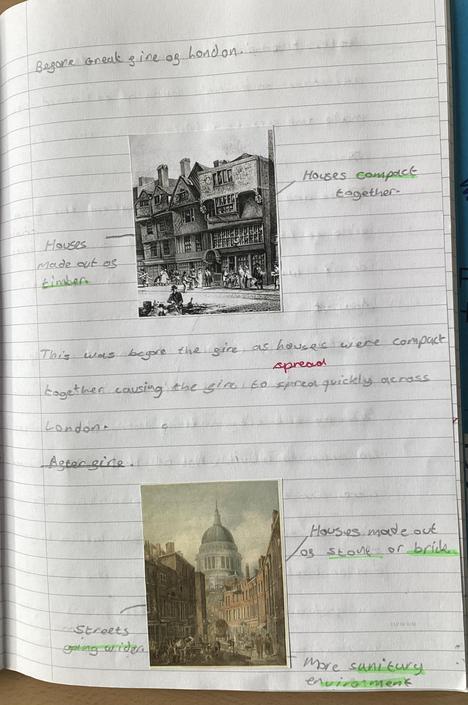 Before Great fire of London.
Houses compact
together.
Houses
made out of
timber.
This was before the fire as houses were compact
spread
together causing the fire to spread quickly across
London.
After fire.
Houses made out
of stone or brick
Streets
going wider.
More sanitary
environment